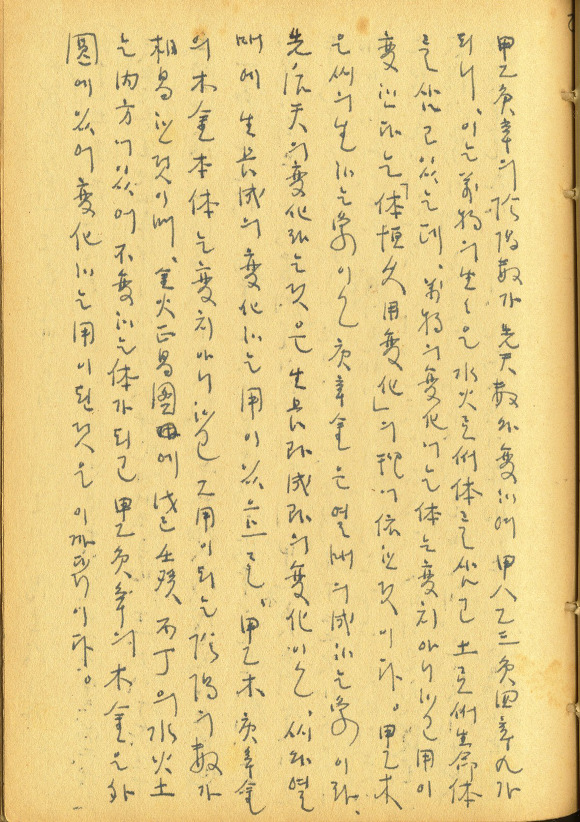 甲乙庚辛의 陰陽數가 先天數와 變하여 甲八乙三庚四辛九가
되니, 이는 萬物의 生生은 水火로써 体를 삼고 土로써 生命体
를 삼고 있는데, 萬物의 變化에는 体는 變치 아니하고 用이
變한다는「体恒久用變化」의 理에 依한 것이다。甲乙木
은 씨의 生하는 象이오 庚辛金은 열매의 成하는 象이라,
先后天의 變化라는 것은 生長과 成과의 變化이오, 씨와 열
매에 生長成의 變化하는 用이 있으므로, 甲乙木 庚辛金
의 木金本体는 變치 아니하고 그 用이 되는 陰陽의 數가
相易한 것이며, 金火正易圖에 戊己壬癸丙丁의 水火土
는 內方에 있어 不變하는 体가 되고 甲乙庚辛의 木金은 外
圓에 있어 變化하는 用이 된 것은 이 까닭이다。